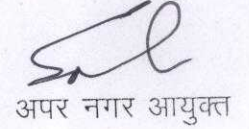 अपर नगर आयुक्त